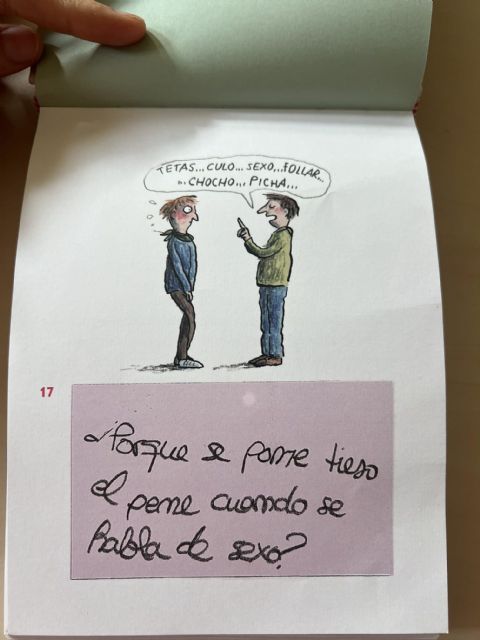 TETAS...CULO...SEXO...FOLLAR...
...CHOCHO... PICHA...
17
¿Porque se pone tieso
el pene cuando se
habla de sexo?